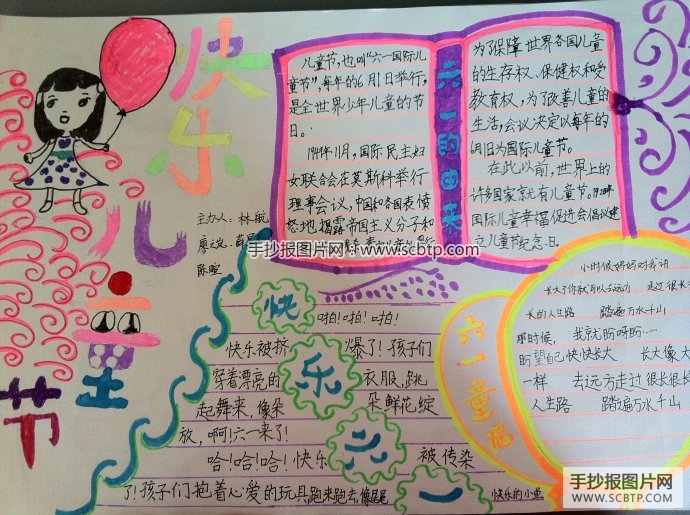 快乐
儿
童
节
主办人：林航
廖之岚、薛
陈暄
六一的由来
儿童节，也叫“六一国际儿
童节”，每年的6月1日举行，
是全世界少年儿童的节
日。
1949年11月，国际民主妇
女联合会在莫斯科举行
理事会议，中国和各国表愤
怒地揭露帝国主义分子和
为了保障世界各国儿童
的生存权、保健权和受
教育权，为了改善儿童的
生活，会议决定以每年的
6月1日为国际儿童节。
在此以前，世界上的
许多国家就有儿童节。
国际儿童幸福促进会倡议建
立儿童节纪念日。
手抄报图片网-www.scbtp.com
快乐六一
啪！啪！啪！
快乐被挤爆了！孩子们
穿着漂亮的衣服，跳
起舞来，像朵朵鲜花绽
放，啊！六一来了！
哈！哈！哈！快乐被传染
了！孩子们抱着心爱的玩具跑来跑去，像
快乐的小鱼
六一童谣
小时候妈妈对我讲
长大了你就可以去远方
走过很长
的人生路 踏遍万水千山
那时候，我就盼呀盼……
盼望自己快快长大 长大像大
一样 去远方走过很长很长
人生路 踏遍万水千山
手抄报图片网
WWW.SCBTP.COM